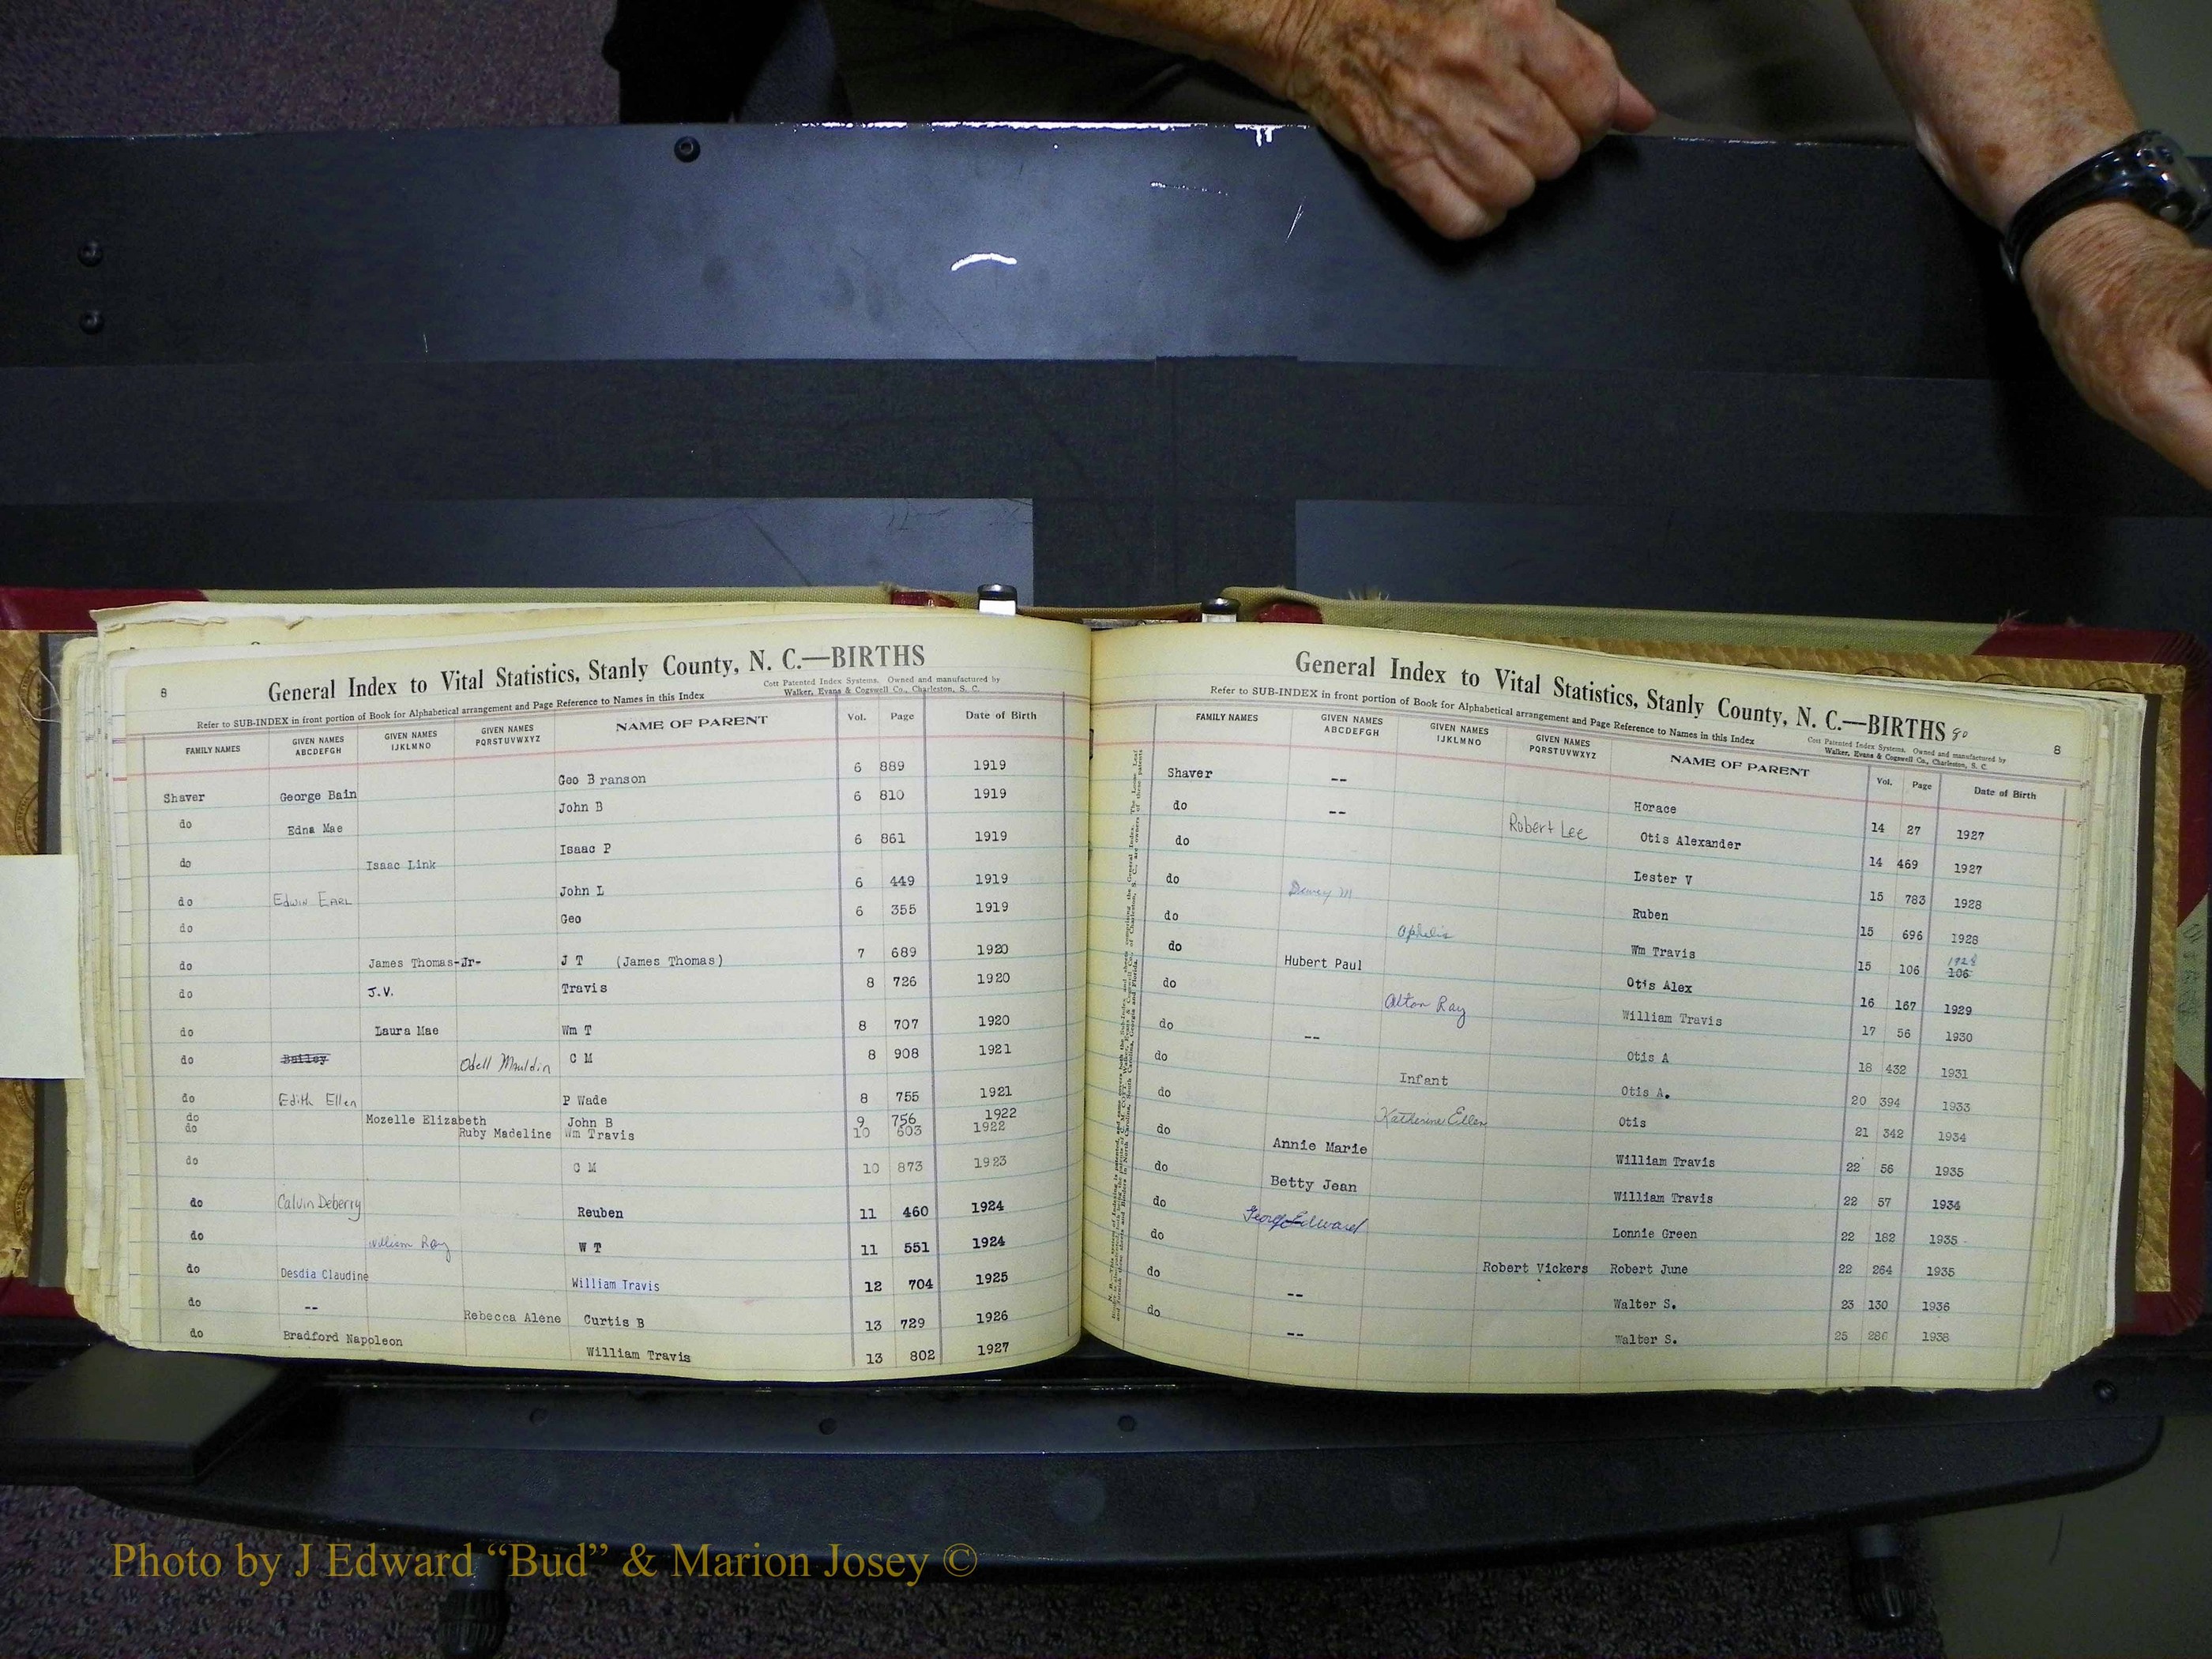 8
General Index to Vital Statistics, Stanly County, N. C.—BIRTHS
Refer to SUB-INDEX in front portion of Book for Alphabetical arrangement and Page Reference to Names in this Index
Cott Patented Index Systems. Owned and manufactured by
Walker, Evans & Cogswell Co., Charleston, S. C.
FAMILY NAMES GIVEN NAMES ABCDEFGH GIVEN NAMES IJKLMNO GIVEN NAMES PQRSTUVWXYZ NAME OF PARENT Vol. Page Date of Birth
Shaver George Bain Geo Branson 6 889 1919
do Edna Mae John B 6 810 1919
do Isaac Link Isaac P 6 861 1919
do Edwin Earl John L 6 449 1919
do Geo 6 355 1919
do James Thomas-Jr- J T (James Thomas) 7 689 1920
do J.V. Travis 8 726 1920
do Laura Mae Wm T 8 707 1920
do Batley Odell Mauldin C M 8 908 1921
do Edith Ellen P Wade 8 755 1921
do Mozelle Elizabeth John B 9 756 1922
do Ruby Madeline Wm Travis 10 603 1922
do C M 10 873 1923
do Calvin Deberry Reuben 11 460 1924
do William Ray W T 11 551 1924
do Desdia Claudine William Travis 12 704 1925
do -- Rebecca Alene Curtis B 13 729 1926
do Bradford Napoleon William Travis 13 802 1927
General Index to Vital Statistics, Stanly County, N. C.—BIRTHS 90
8
Refer to SUB-INDEX in front portion of Book for Alphabetical arrangement and Page Reference to Names in this Index
Cott Patented Index Systems. Owned and manufactured by
Walker, Evans & Cogswell Co., Charleston, S. C.
FAMILY NAMES GIVEN NAMES ABCDEFGH GIVEN NAMES IJKLMNO GIVEN NAMES PQRSTUVWXYZ NAME OF PARENT Vol. Page Date of Birth
Shaver -- Horace 14 27 1927
do -- Robert Lee Otis Alexander 14 469 1927
do Lester V 15 783 1928
do Dewey M Ruben 15 696 1928
do Ophelia Wm Travis 15 106 1928 106
do Hubert Paul Otis Alex 16 167 1929
do Alton Ray William Travis 17 56 1930
do -- Otis A 18 432 1931
do Infant Otis A. 20 394 1933
do Katherine Ellen Otis 21 342 1934
do Annie Marie William Travis 22 56 1935
do Betty Jean William Travis 22 57 1934
do George Edward Lonnie Green 22 182 1935
do Robert Vickers Robert June 22 264 1935
do -- Walter S. 23 130 1936
do -- Walter S. 25 286 1938
Photo by J Edward “Bud” & Marion Josey ©